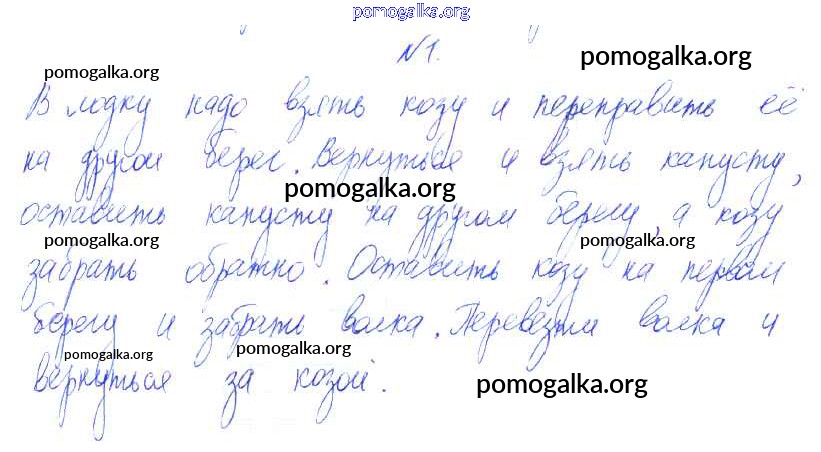 pomogalka.org
№1.
pomogalka.org
pomogalka.org
В лодку надо взять козу и переправить её
на другой берег. Вернуться и взять капусту,
pomogalka.org
оставить капусту на другом берегу, а козу
pomogalka.org
pomogalka.org
забрать обратно. Оставить козу на первом
берегу и забрать волка. Перевезти волка и
pomogalka.org
pomogalka.org
вернуться за козой.
pomogalka.org